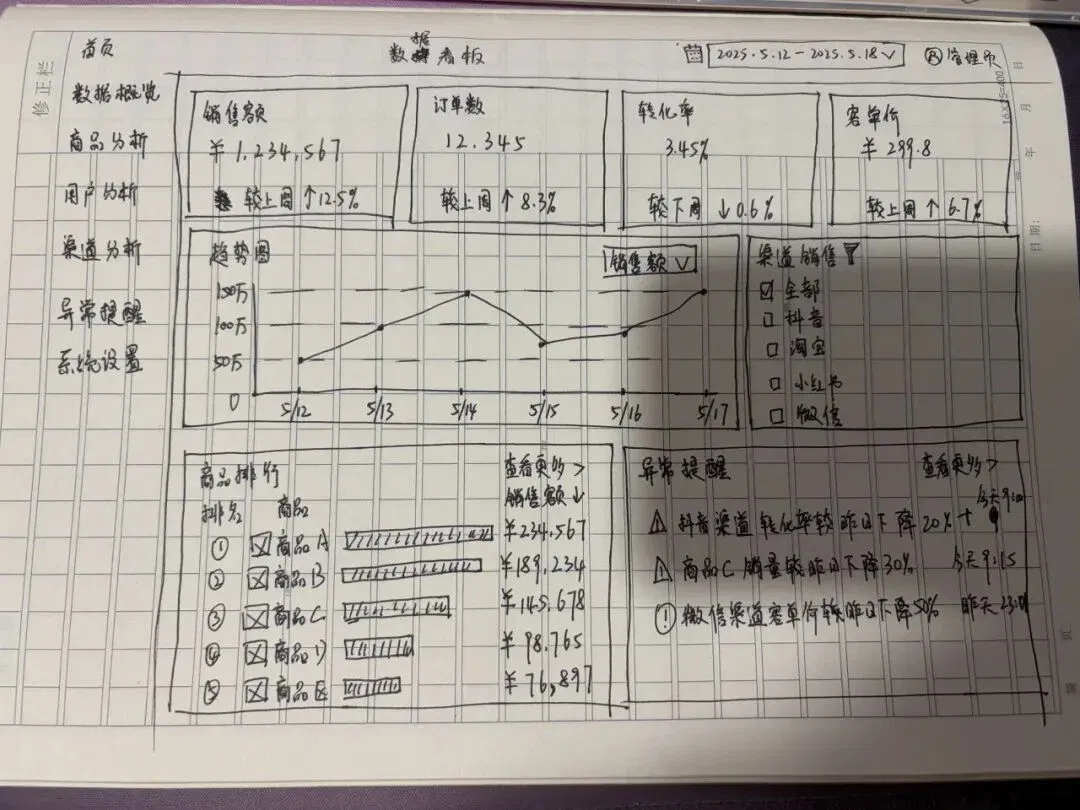 首页
数据看板
2025.5.12-2025.5.18
管理员
修正栏
数据概览
商品分析
用户分析
渠道分析
异常提醒
系统设置
销售额
¥1,234,567
较上周↑12.5%
订单数
12.345
较上周↑8.3%
转化率
3.45%
较下周↓0.6%
客单价
¥299.8
较上周↑6.7%
趋势图
销售额
150万
100万
50万
0
5/12 5/13 5/14 5/15 5/16 5/17
渠道销售
全部
抖音
淘宝
小红书
微信
商品排行
查看更多 >
排名 商品 销售额↓
① 商品A ¥234,567
② 商品B ¥189,234
③ 商品C ¥145,678
④ 商品D ¥98.765
⑤ 商品E ¥76,897
异常提醒
查看更多 >
抖音渠道转化率较昨日下降20% 今天9:00
商品C销量较昨日下降30% 今天9:15
微信渠道客单价较昨日下降50% 昨天23:00
16×25=400
年 月 日
日期:
页 第